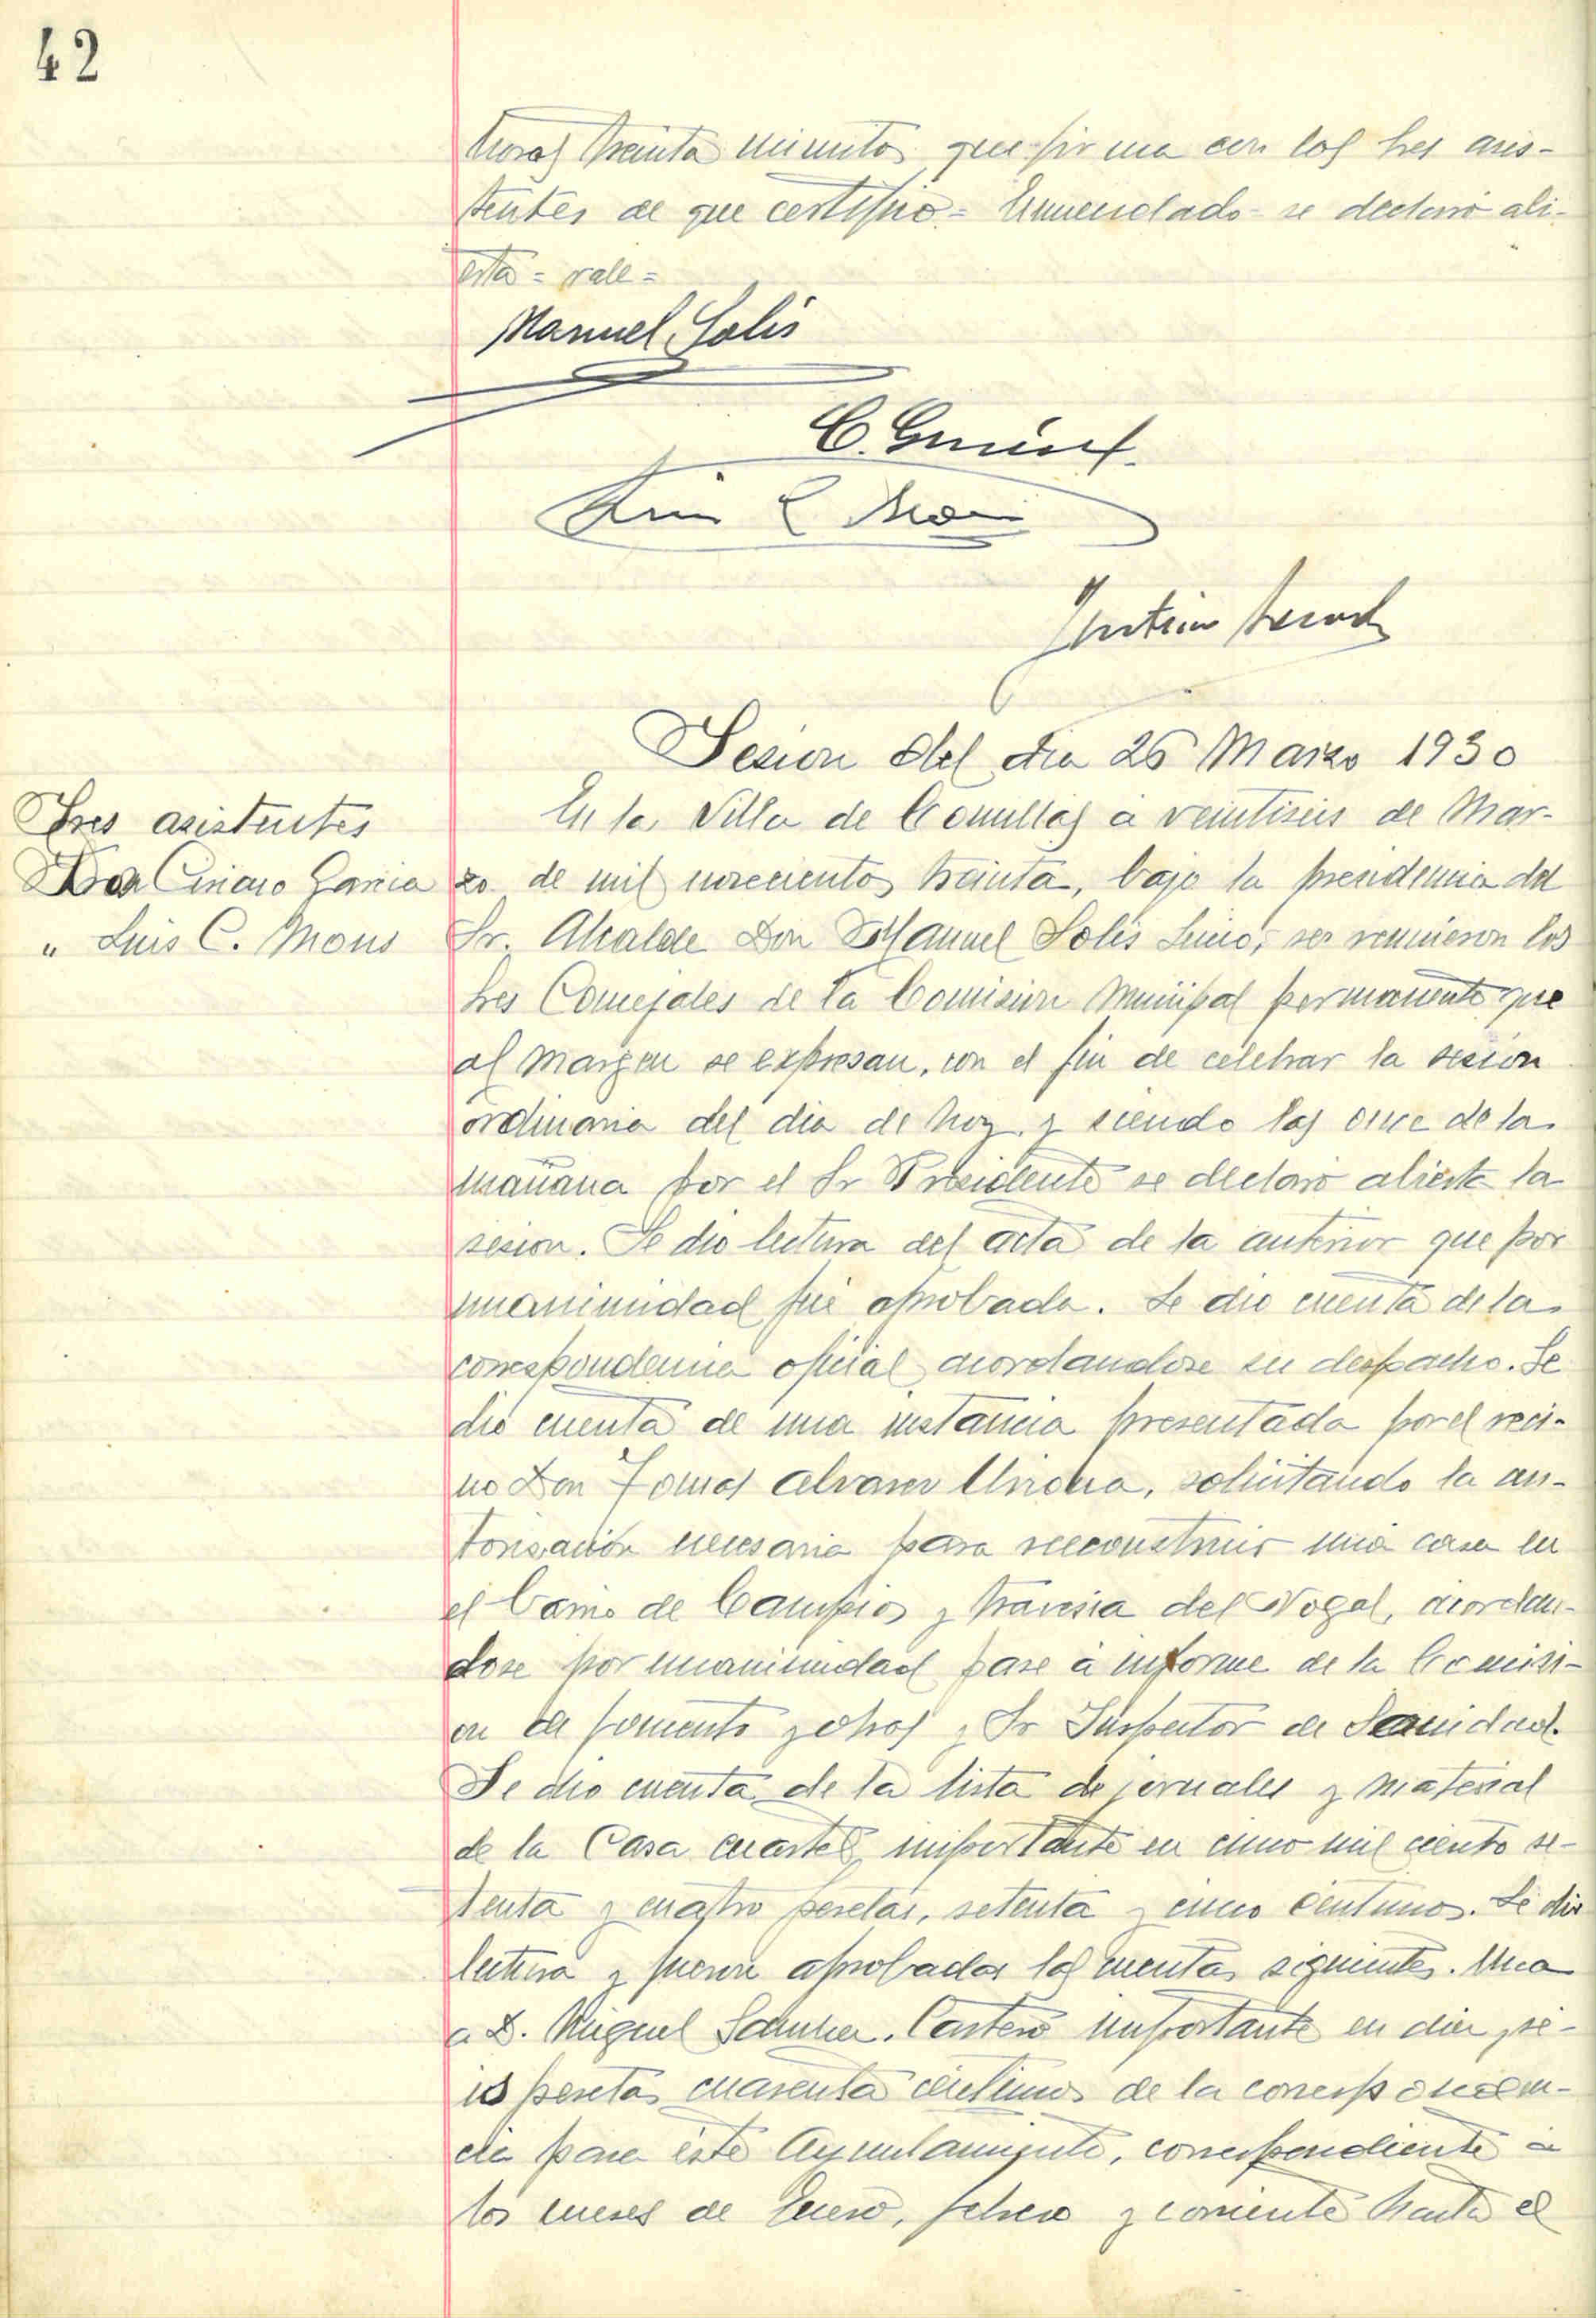 42
horas treinta minutos que firma con los Sres asis-
tentes de que certifico.= Enmendado - se declaro abi-
erta = vale =
Manuel Solis
Sesion del dia 26 Marzo 1930
Sres asistentes
Don Ciriaco Garcia
" Luis C. Mons
En la Villa de Comillas a veintiseis de Mar-
zo de mil novecientos treinta, bajo la presidencia del
Sr. Alcalde Don Manuel Solis se reunieron los
Sres Concejales de la Comision Municipal permanente que
al margen se expresan, con el fin de celebrar la sesion
ordinaria del dia de hoy y siendo las once de la
mañana por el Sr Presidente se declaro abierta la
sesion. Se dio lectura del acta de la anterior que por
unanimidad fué aprobada. Se dio cuenta de la
correspondencia oficial acordandose su despacho. Se
dió cuenta de una instancia presentada por el veci-
no Don Tomas Alvarez, solicitando la au-
torisación necesaria para reeconstruir una casa en
el Corro de Campios y travesia del Nogal, acordan-
dose por unanimidad pase a informe de la Comisi-
on de fomento y obras y Sr Inspector de Sanidad.
Se dio cuenta de la lista de jornales y material
de la Casa cuartel, importante en cinco mil ciento se-
tenta y cuatro pesetas, setenta y cinco centimos. Se dio
lectura y fueron aprobadas las cuentas siguientes. Una
a D. Miguel Sanchez. Cartero importante en diez y se-
is pesetas cuarenta centimos de la corresponden-
cia para este Ayuntamiento, correspondiente a
los meses de Enero, febrero y corriente hasta el